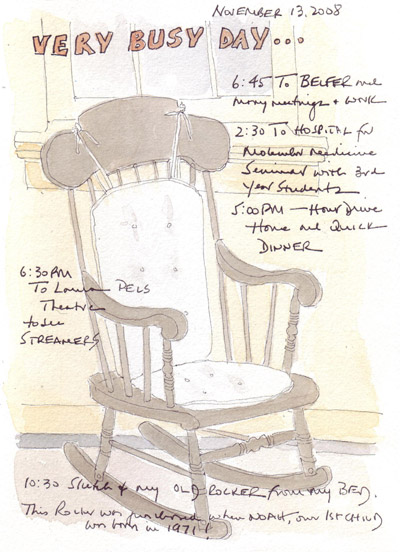 NOVEMBER 13, 2008
VERY BUSY DAY...
6:45 TO BELFER and
many meetings + WORK
2:30 TO HOSPITAL for
Molecular Medicine
Seminar with 3rd
Year Students
5:00PM — Hour Drive
Home and QUICK
DINNER
6:30PM
To Laura PELS
Theatre
to see
STREAMERS
10:30 Sketch of my OLD ROCKER from my BED.
This Rocker was purchased when NOAH, our 1ST CHILD
was born in 1971!